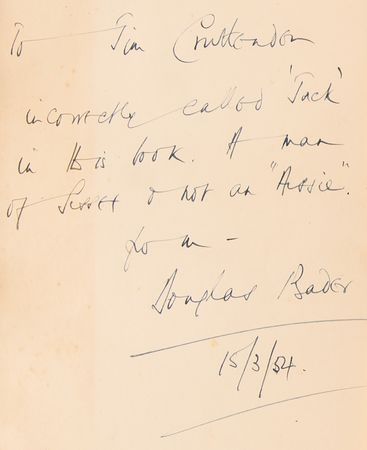 To Jim Cruttenden
incorrectly called 'Jack'
in this book. A man
of Sussex & not an "Aussie".
from —
Douglas Bader
15/3/54.